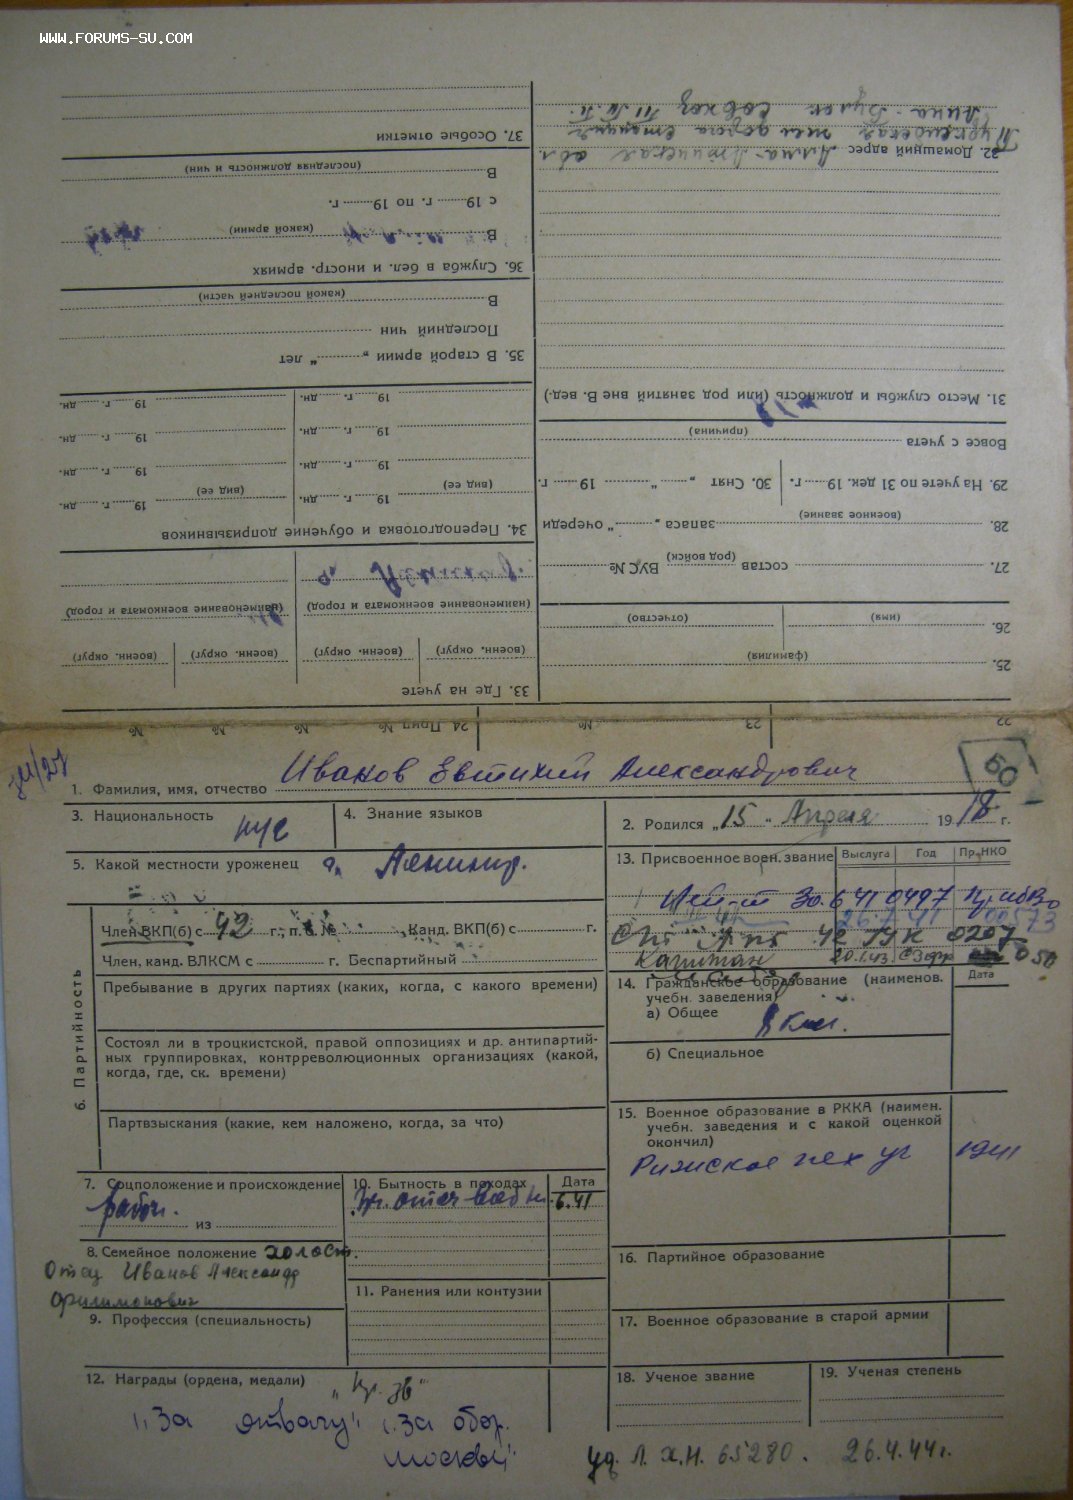 WWW.FORUMS-SU.COM
37. Особые отметки
В
(последняя должность и чин)
с 19 г. по 19 г.
В
(какой армии)
36. Служба в бел. и иностр. армиях
В
(какой последней части)
Последний чин
35. В старой армии „ “ лет
19 г. дн. 19 г. дн.
19 г. дн. 19 г. дн.
19 г. дн. 19 г. дн.
(вид ее) (вид ее)
19 г. дн. 19 г. дн.
34. Переподготовка и обучение допризывников
(наименование военкомата и город) (наименование военкомата и город)
(военн. округ) (военн. округ) (военн. округ) (военн. округ)
33. Где на учете
32. Домашний адрес Алма-Атинская обл.
станция
совхоз
31. Место службы и должность (или род занятий вне В. вед.)
Вовсе с учета
(причина)
29. На учете по 31 дек. 19 г. 30. Снят „ “ 19 г.
28. (военное звание) запаса „ “ очереди
27. состав (род войск) ВУС №
26. (имя) (отчество)
25. (фамилия)
22 23 № 24 Прип № № № №
1. Фамилия, имя, отчество Иванов Евтихий Александрович
50
3. Национальность рус
4. Знание языков
2. Родился „15“ Апреля 1918 г.
5. Какой местности уроженец г. Ленингр.
13. Присвоенное воен. звание Выслуга Год Пр. НКО
Лей-т 30.6 41 0497 ПрибВо
26.7.41 00573
0207
Капитан 20.1.43 050
6. Партийность
Член ВКП(б) с 42 г., п. б. № Канд. ВКП(б) с г.
Член, канд. ВЛКСМ с г. Беспартийный
Пребывание в других партиях (каких, когда, с какого времени)
Состоял ли в троцкистской, правой оппозициях и др. антипартий-
ных группировках, контрреволюционных организациях (какой,
когда, где, ск. времени)
Партвзыскания (какие, кем наложено, когда, за что)
14. Гражданское образование (наименов. Дата
учебн. заведения)
а) Общее
8 кл.
б) Специальное
15. Военное образование в РККА (наимен.
учебн. заведения и с какой оценкой
окончил)
Рижское пех уч 1941
7. Соцположение и происхождение
рабоч.
из
8. Семейное положение холост.
Отец Иванов Александр
Филимонович
9. Профессия (специальность)
10. Бытность в походах Дата
отеч 6.41
11. Ранения или контузии
16. Партийное образование
17. Военное образование в старой армии
12. Награды (ордена, медали)
„Кр. Зв“
„За отвагу“ „За обор.
Москвы“
18. Ученое звание
19. Ученая степень
уд. Л. Х.Н. 65280. 26.4.44г.